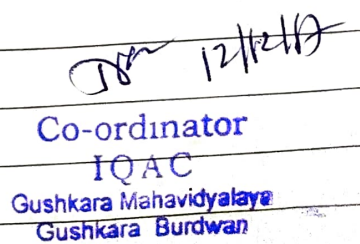 12/12/17
Co-ordinator
IQAC
Gushkara Mahavidyalaya
Gushkara Burdwan